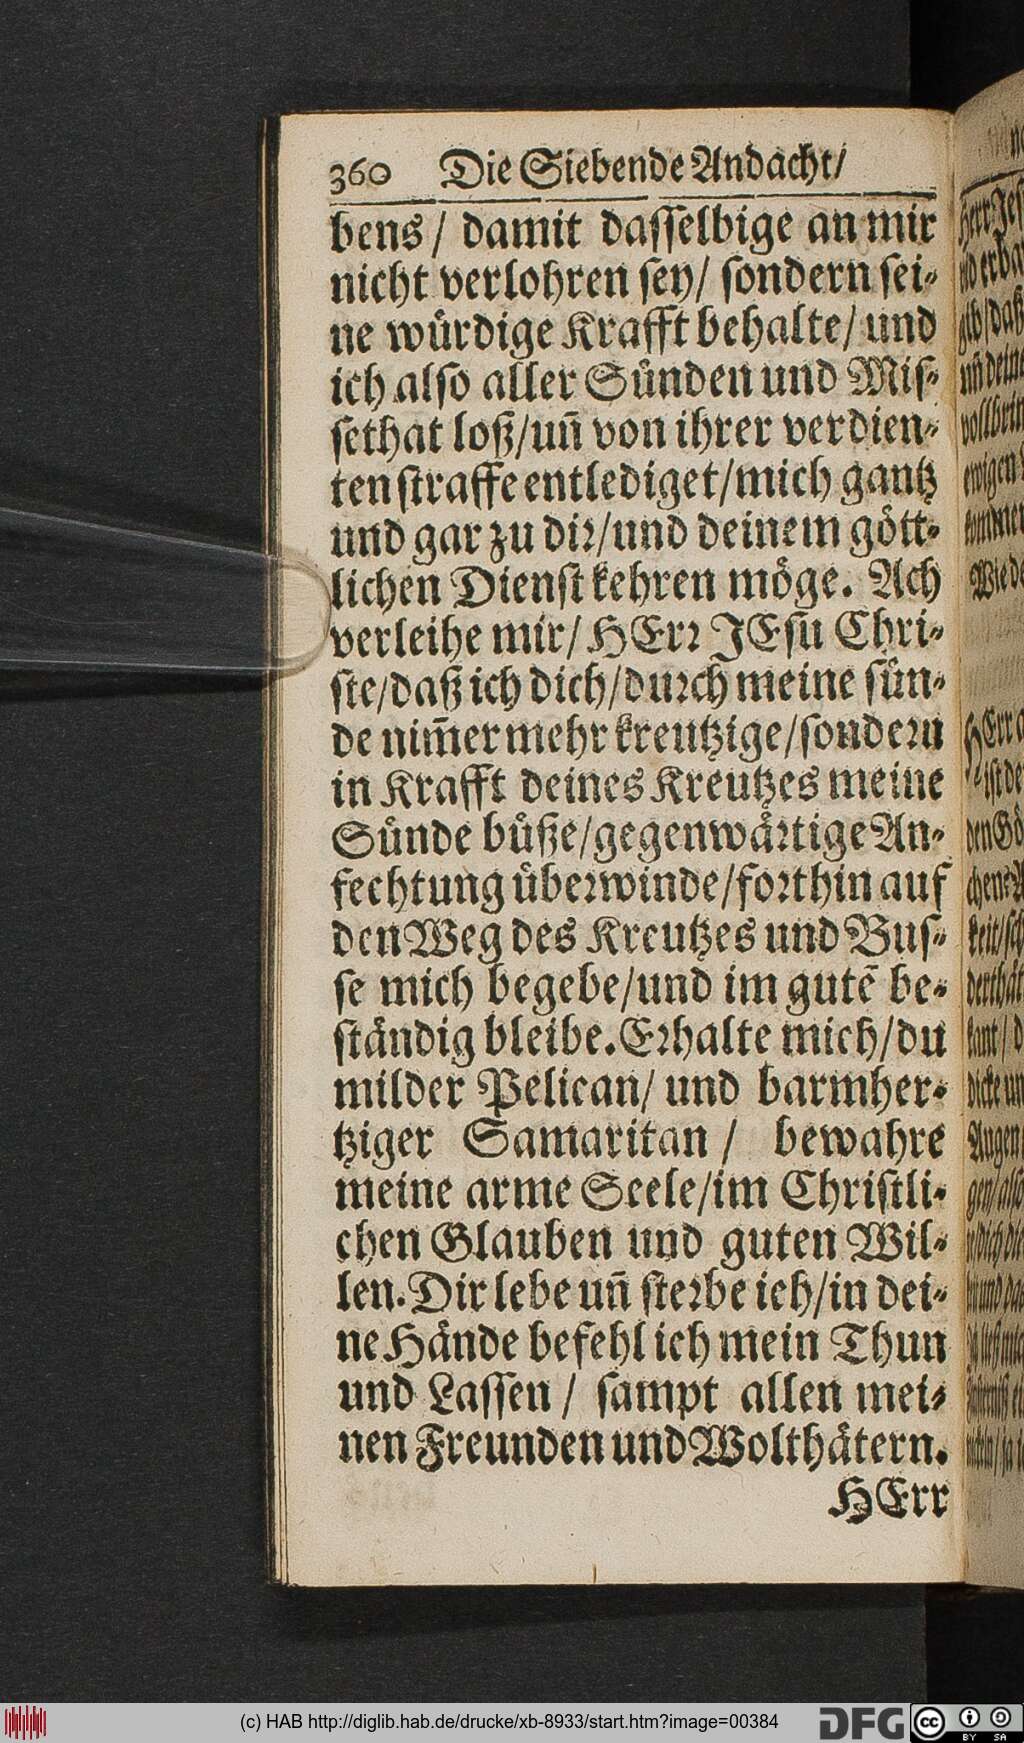 360 Die Siebende Andacht/
bens / damit dasselbige an mir
nicht verlohren sey/ sondern sei-
ne würdige Krafft behalte/ und
ich also aller Sünden und Mis-
sethat loß/uñ von ihrer verdien-
ten straffe entlediget/mich gantz
und gar zu dir/und deinem gött-
lichen Dienst kehren möge. Ach
verleihe mir/ HErr JEsu Chri-
ste/daß ich dich/durch meine sün-
de nim̃er mehr kreutzige/sondern
in Krafft deines Kreutzes meine
Sünde büße/gegenwärtige An-
fechtung überwinde/forthin auf
den Weg des Kreutzes und Bus-
se mich begebe/und im gutẽ be-
ständig bleibe. Erhalte mich/du
milder Pelican/ und barmher-
tziger Samaritan / bewahre
meine arme Seele/im Christli-
chen Glauben und guten Wil-
len. Dir lebe uñ sterbe ich/in dei-
ne Hände befehl ich mein Thun
und Lassen / sampt allen mei-
nen Freunden und Wolthätern.
HErr
(c) HAB http://diglib.hab.de/drucke/xb-8933/start.htm?image=00384
DFG
cc BY SA